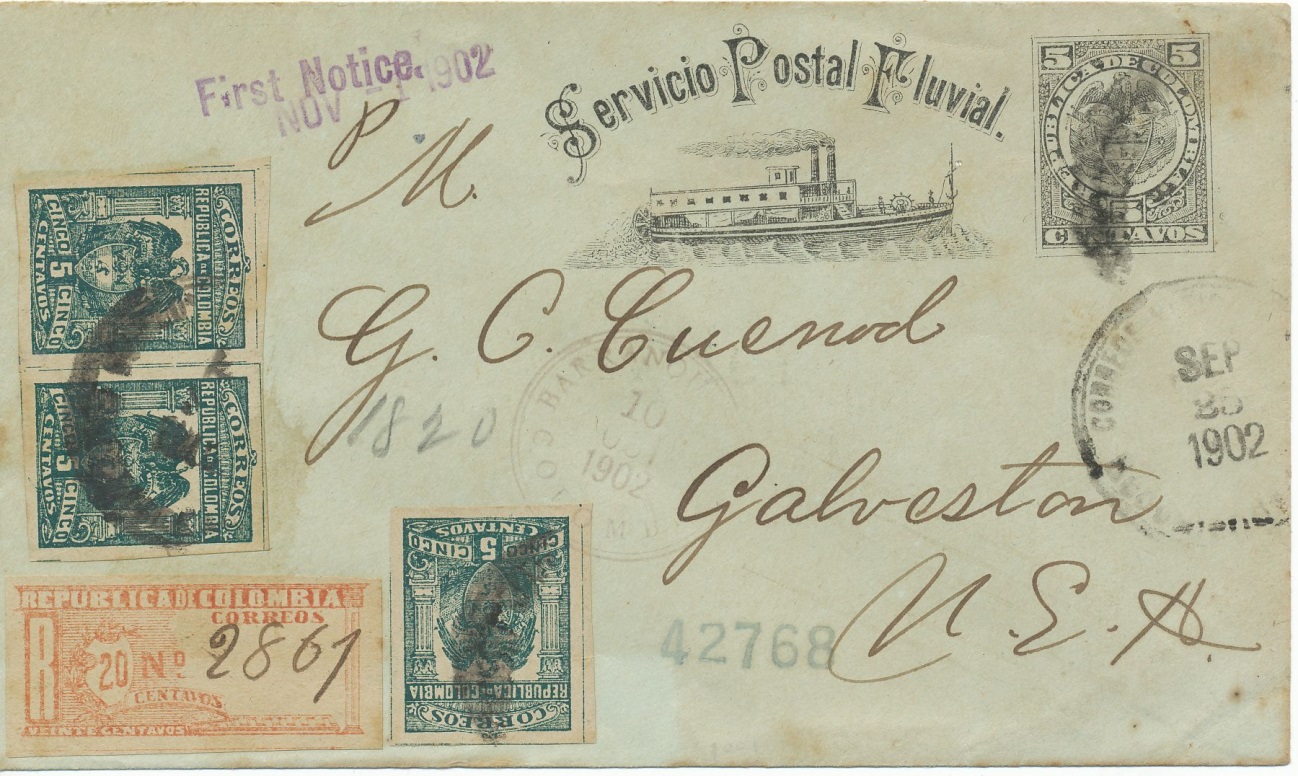 First Notice.
NOV - 1 1902
Servicio Postal Fluvial.
5 5
REPUBLICA DE COLOMBIA
5
CENTAVOS
P
M.
G. C. Cuenod
Galveston
U. E. A.
1820
10
1902
CORREOS
SEP
1902
CORREOS
REPUBLICA DE COLOMBIA
CINCO 5 CINCO
CENTAVOS
CORREOS
REPUBLICA DE COLOMBIA
CINCO 5 CINCO
CENTAVOS
REPUBLICA DE COLOMBIA
CORREOS
R 20 No 2861
CENTAVOS
VEINTE CENTAVOS
CORREOS
REPUBLICA DE COLOMBIA
CINCO 5 CINCO
CENTAVOS
42768